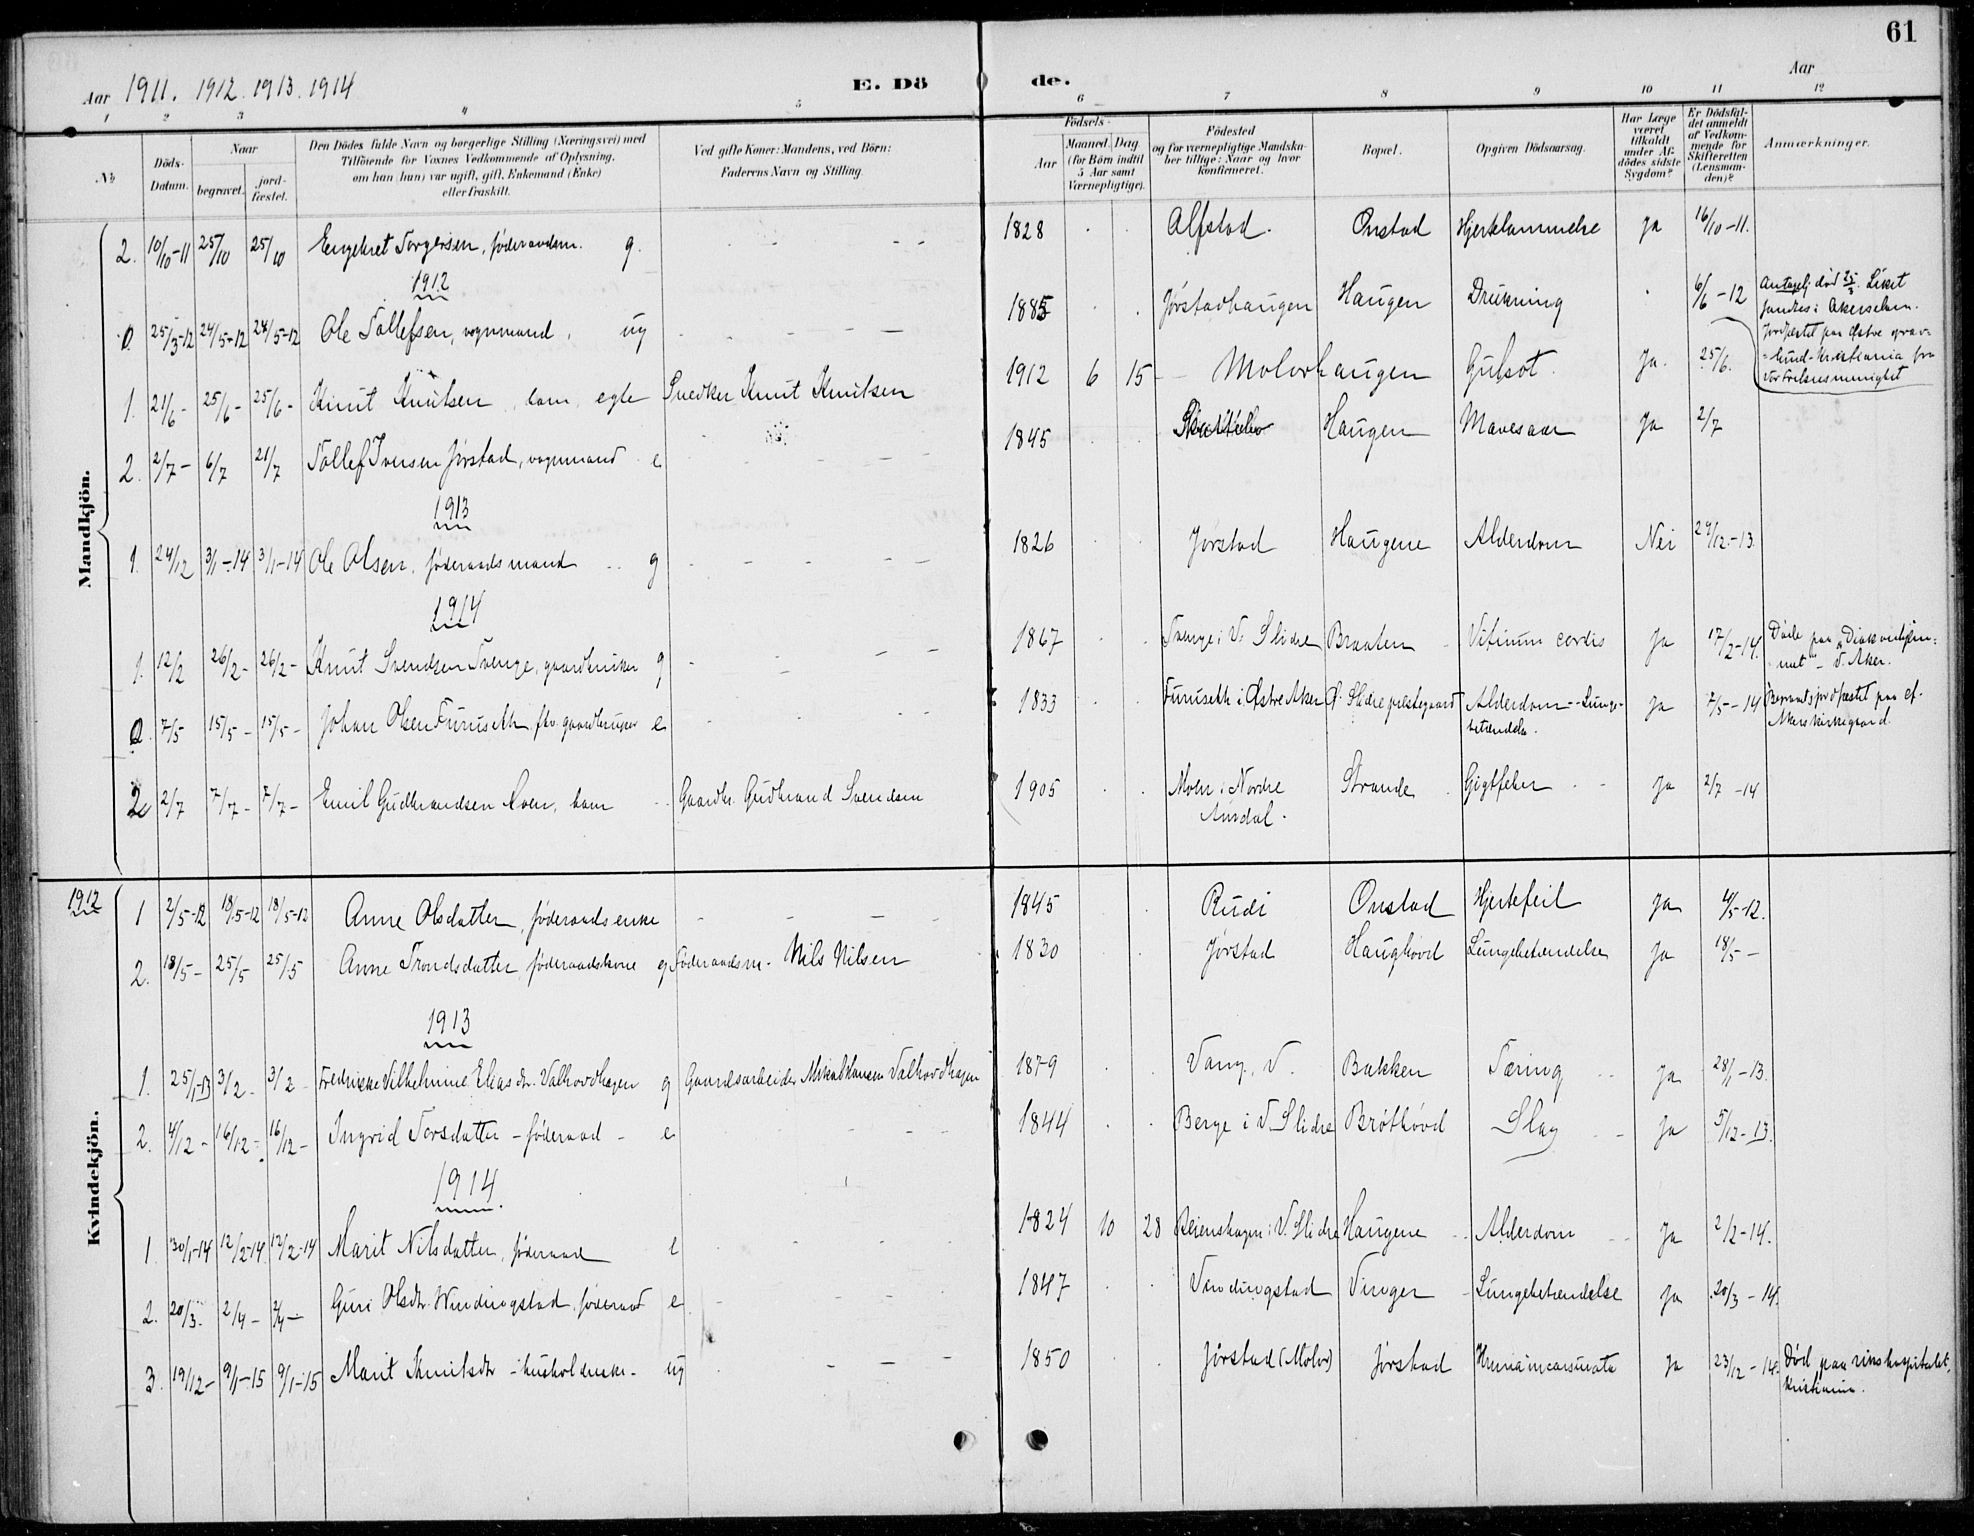 61
Aar 1911. 1912. 1913. 1914
E. Dö de.
Aar
1 2 3 4 5 6 7 8 9 10 11 12
No
Döds-Datum.
Naar
begravet.
jord-fæstet.
Den Dödes fulde Navn og borgerlige Stilling (Næringsvei) med
Tilföiende for Voxnes Vedkommende af Oplysning,
om han (hun) var ugift, gift, Enkemand (Enke)
eller fraskilt.
Ved gifte Koner: Mandens, ved Börn:
Faderens Navn og Stilling.
Födsels-
Aar
Maaned. Dag
(for Börn indtil
5 Aar samt
Værnepligtige).
Födested
og for værnepligtige Mandska-
ber tillige: Naar og hvor
konfirmeret.
Bopæl.
Opgiven Dödsaarsag.
Har Læge
været
tilkaldt
under Af-
dödes sidste
Sygdom?
Er Dödsfal-
det anmeldt
af Vedkom-
mende for
Skifteretten
(Lensman-
den)?
Anmærkninger.
Mandkjön.
2. 10/10-11 25/10 25/10 Engebret Torgersen, föderaadsm. g. 1828 Alfstad. Onstad Hjertelammelse Ja 16/10-11.
1912
0. 25/3-12 24/5-12 24/5-12 Ole Tollefsen, vognmand, ug 1885 Jörstadhaugen Haugen Drukning 6/6-12 Antagelig död 25/3. Liket
fandtes i Akerselven.
Jordfæstet paa Østre grav-
lund Kristiania fra
Vor Frelsers menighet
1. 21/6- 25/6- 25/6- Knut Knutsen, barn, egte Snedker Knut Knutsen 1912 6 15 Molvorhaugen Gulsot. Ja. 25/6.
2. 2/7- 6/7 21/7 Tollef Iversen Jörstad, vognmand e 1845 Haugen Mavesaar Ja 2/7
1913
1. 24/12 3/1-14 3/1-14 Ole Olsen, föderaadsmand g 1826 Jörstad Haugene Alderdom Nei 29/12-13.
1914
1. 12/2 26/2- 26/2- Knut Svendsen Tvenge, gaardbruker g 1867 Tvenge i V. Slidre Braaten Vitium cordis Ja 17/2-14. Döde paa "Diakonhjem-
met" - V. Aker.
0. 7/5 15/5- 15/5- Johan Olsen Furuseth, fhv. gaardbruger e 1833 Furuseth i Østre Aker Ø. Slidre prestegaard Alderdom - Lunge-
betændelse. Ja 7/5-14 Begravet, jordfæstet paa Ø.
Akers kirkegaard.
2 2/7 7/7- 7/7- Emil Gudbrandsen Moen, barn Gaardbr. Gudbrand Svendsen 1905 Moen i Nordre
Aurdal. Strande Gigtfeber Ja 2/7-14
Kvindekjön.
1912
1 2/5-12 18/5-12 18/5-12 Anne Olsdatter, föderaadsenke 1845 Rudi Onstad Hjertefeil Ja 4/5-12.
2. 18/5- 25/5 25/5 Anne Trondsdatter, föderaadskone g Föderaadsm. Nils Nilsen 1830 Jörstad Haughövd Lungebetændelse Ja 18/5-
1913
1. 25/1-13 3/2- 3/2- Fredrikke Vilhelmine Eliasdtr. Valhovdhagen g Gaardsarbeider Mikal Hansen Valhovdhagen 1879 Vang, V. Bakken Tæring Ja 28/1-13.
2. 4/12- 16/12- 16/12- Ingrid Torsdatter - föderaad - e 1844 Berge i V. Slidre Bröthövd Slag Ja 5/12-13.
1914.
1. 30/1-14 12/2-14 12/2-14 Marit Nilsdatter, föderaad e 1824 10 28 Reienshagen i V. Slidre Haugene Alderdom Ja 2/2-14.
2. 20/3. 2/4- 2/4- Guri Olsdtr. Windingstad, föderaad e 1847 Vindingstad Vinger Lungebetændelse Ja 20/3-14.
3. 19/12- 9/1-15 9/1-15 Marit Knutsdtr - husholderske - ug 1850 Jörstad (Molvr) Jörstad Hernia incarserata Ja 23/12-14. Död paa rikshospitalet,
Kristiania.